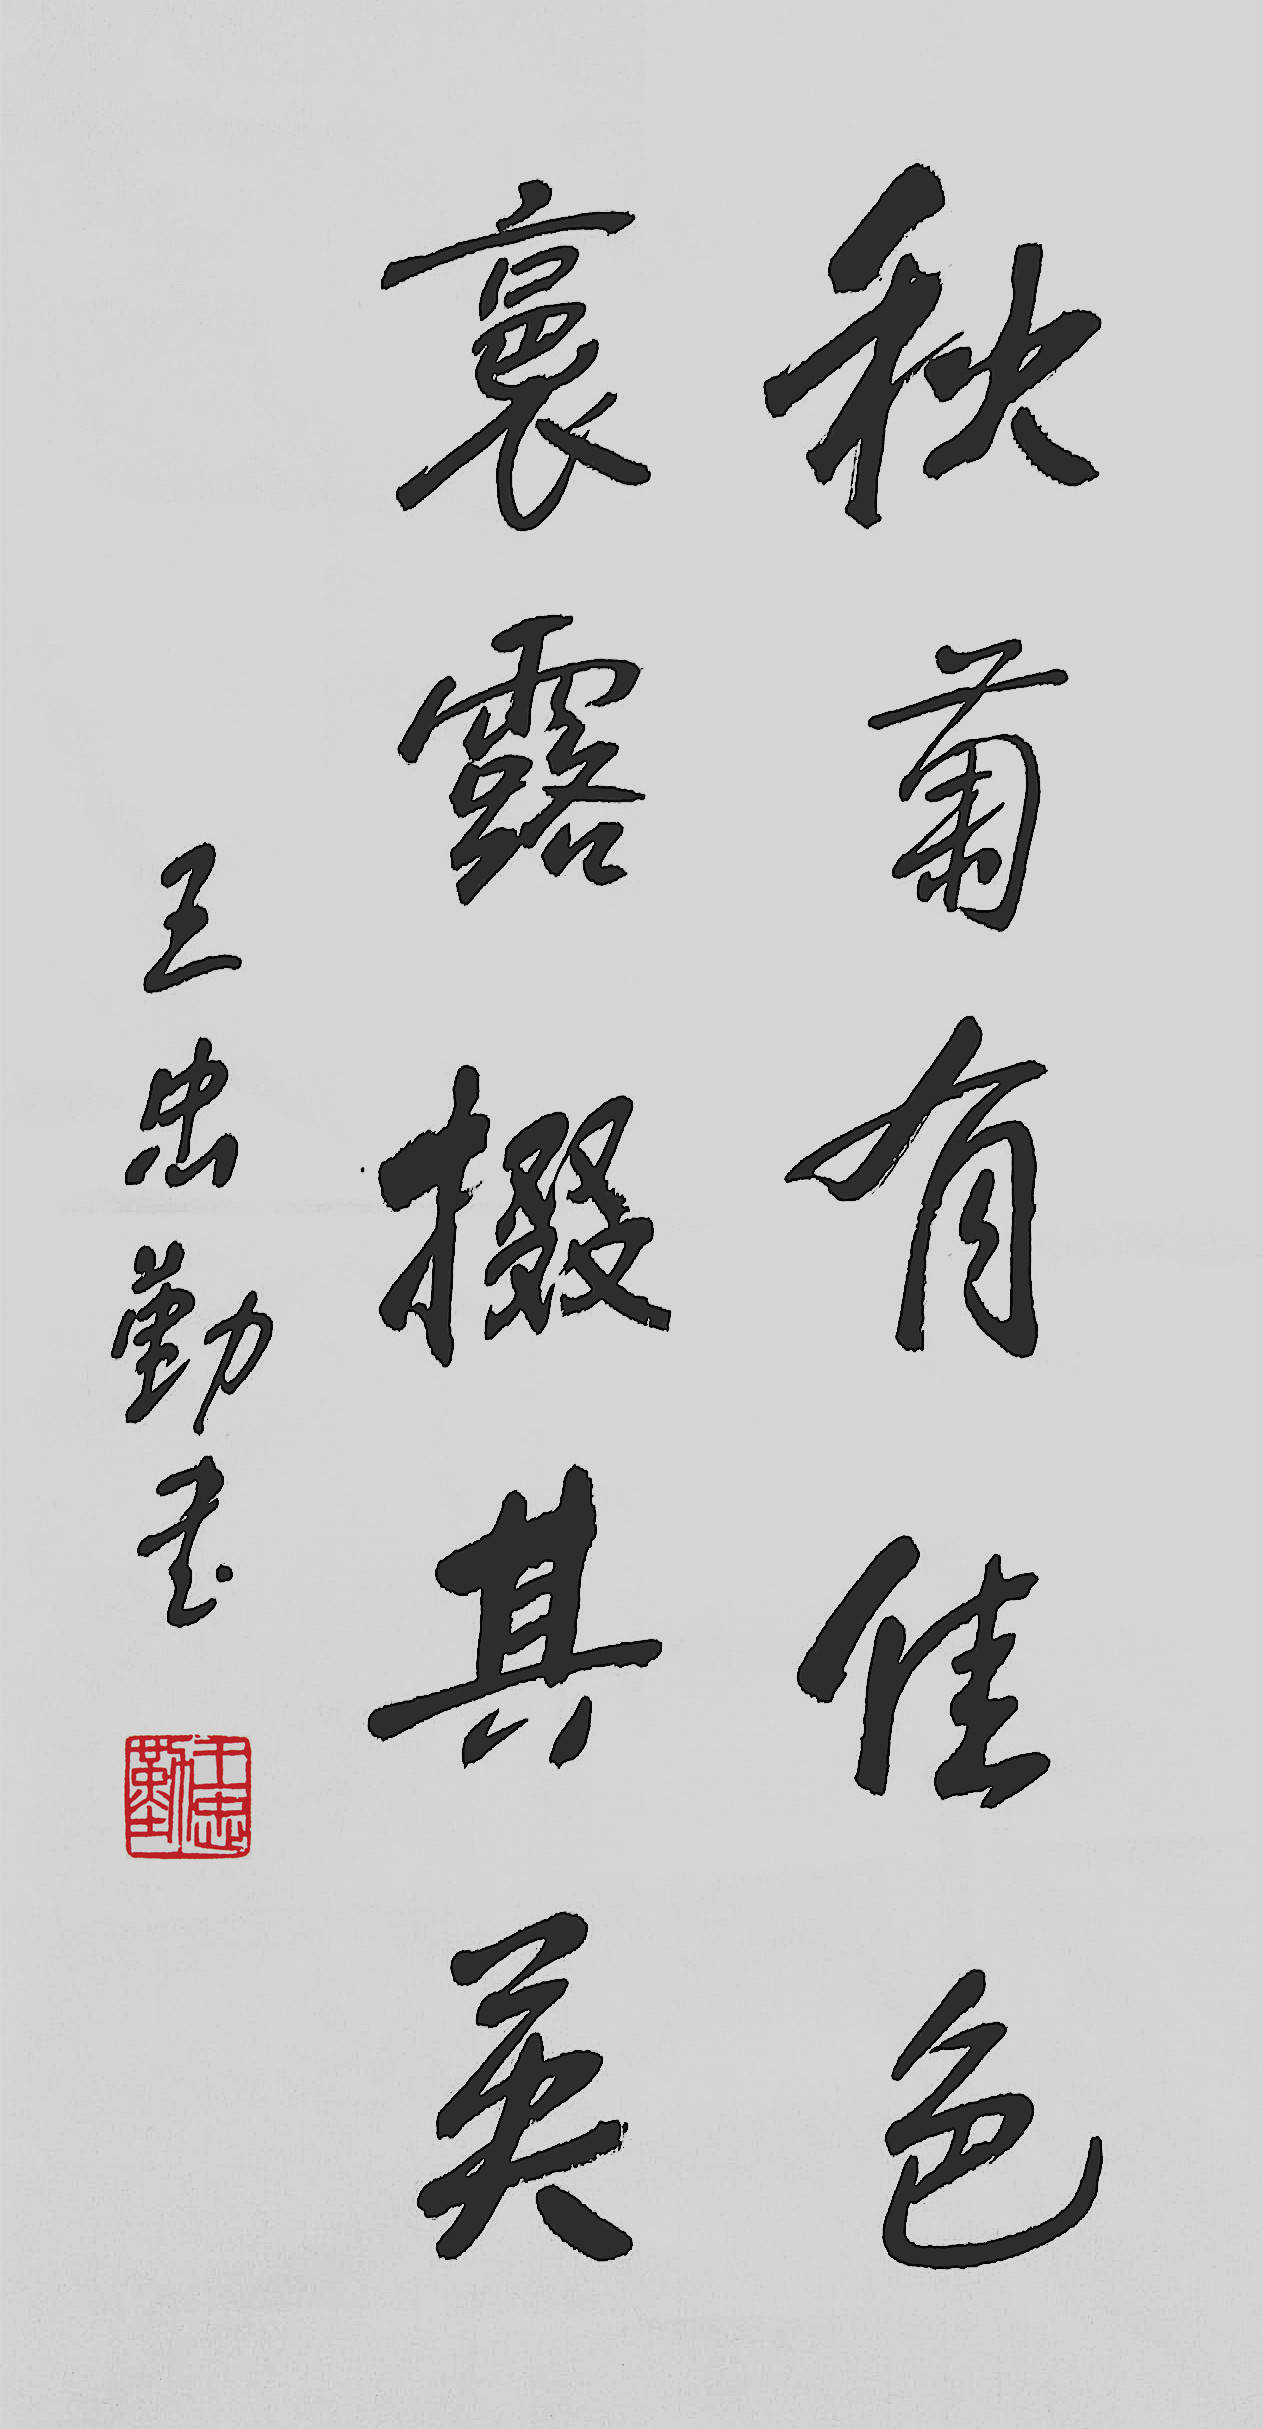 秋菊有佳色
裛露掇其英
王忠勤书
王忠勤